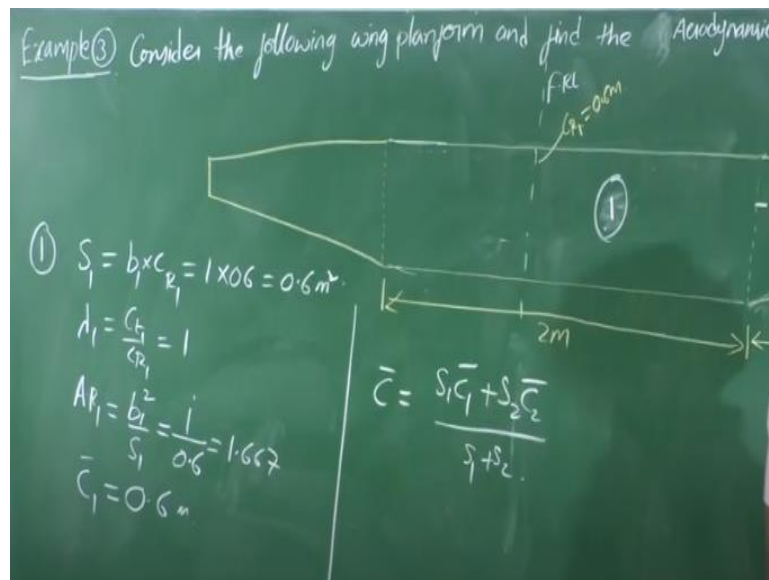 Example ③ Consider the following wing planform and find the Aerodynamic
FRL
C_R₁ = 0.6m
①
① S₁ = b₁ × C_R₁ = 1 × 06 = 0.6 m².
λ₁ = C_t₁ / C_R₁ = 1
AR₁ = b₁² / S₁ = 1 / 0.6 = 1.667
C̄₁ = 0.6 m
2m
C̄ = S₁C̄₁ + S₂C̄₂ / S₁ + S₂.